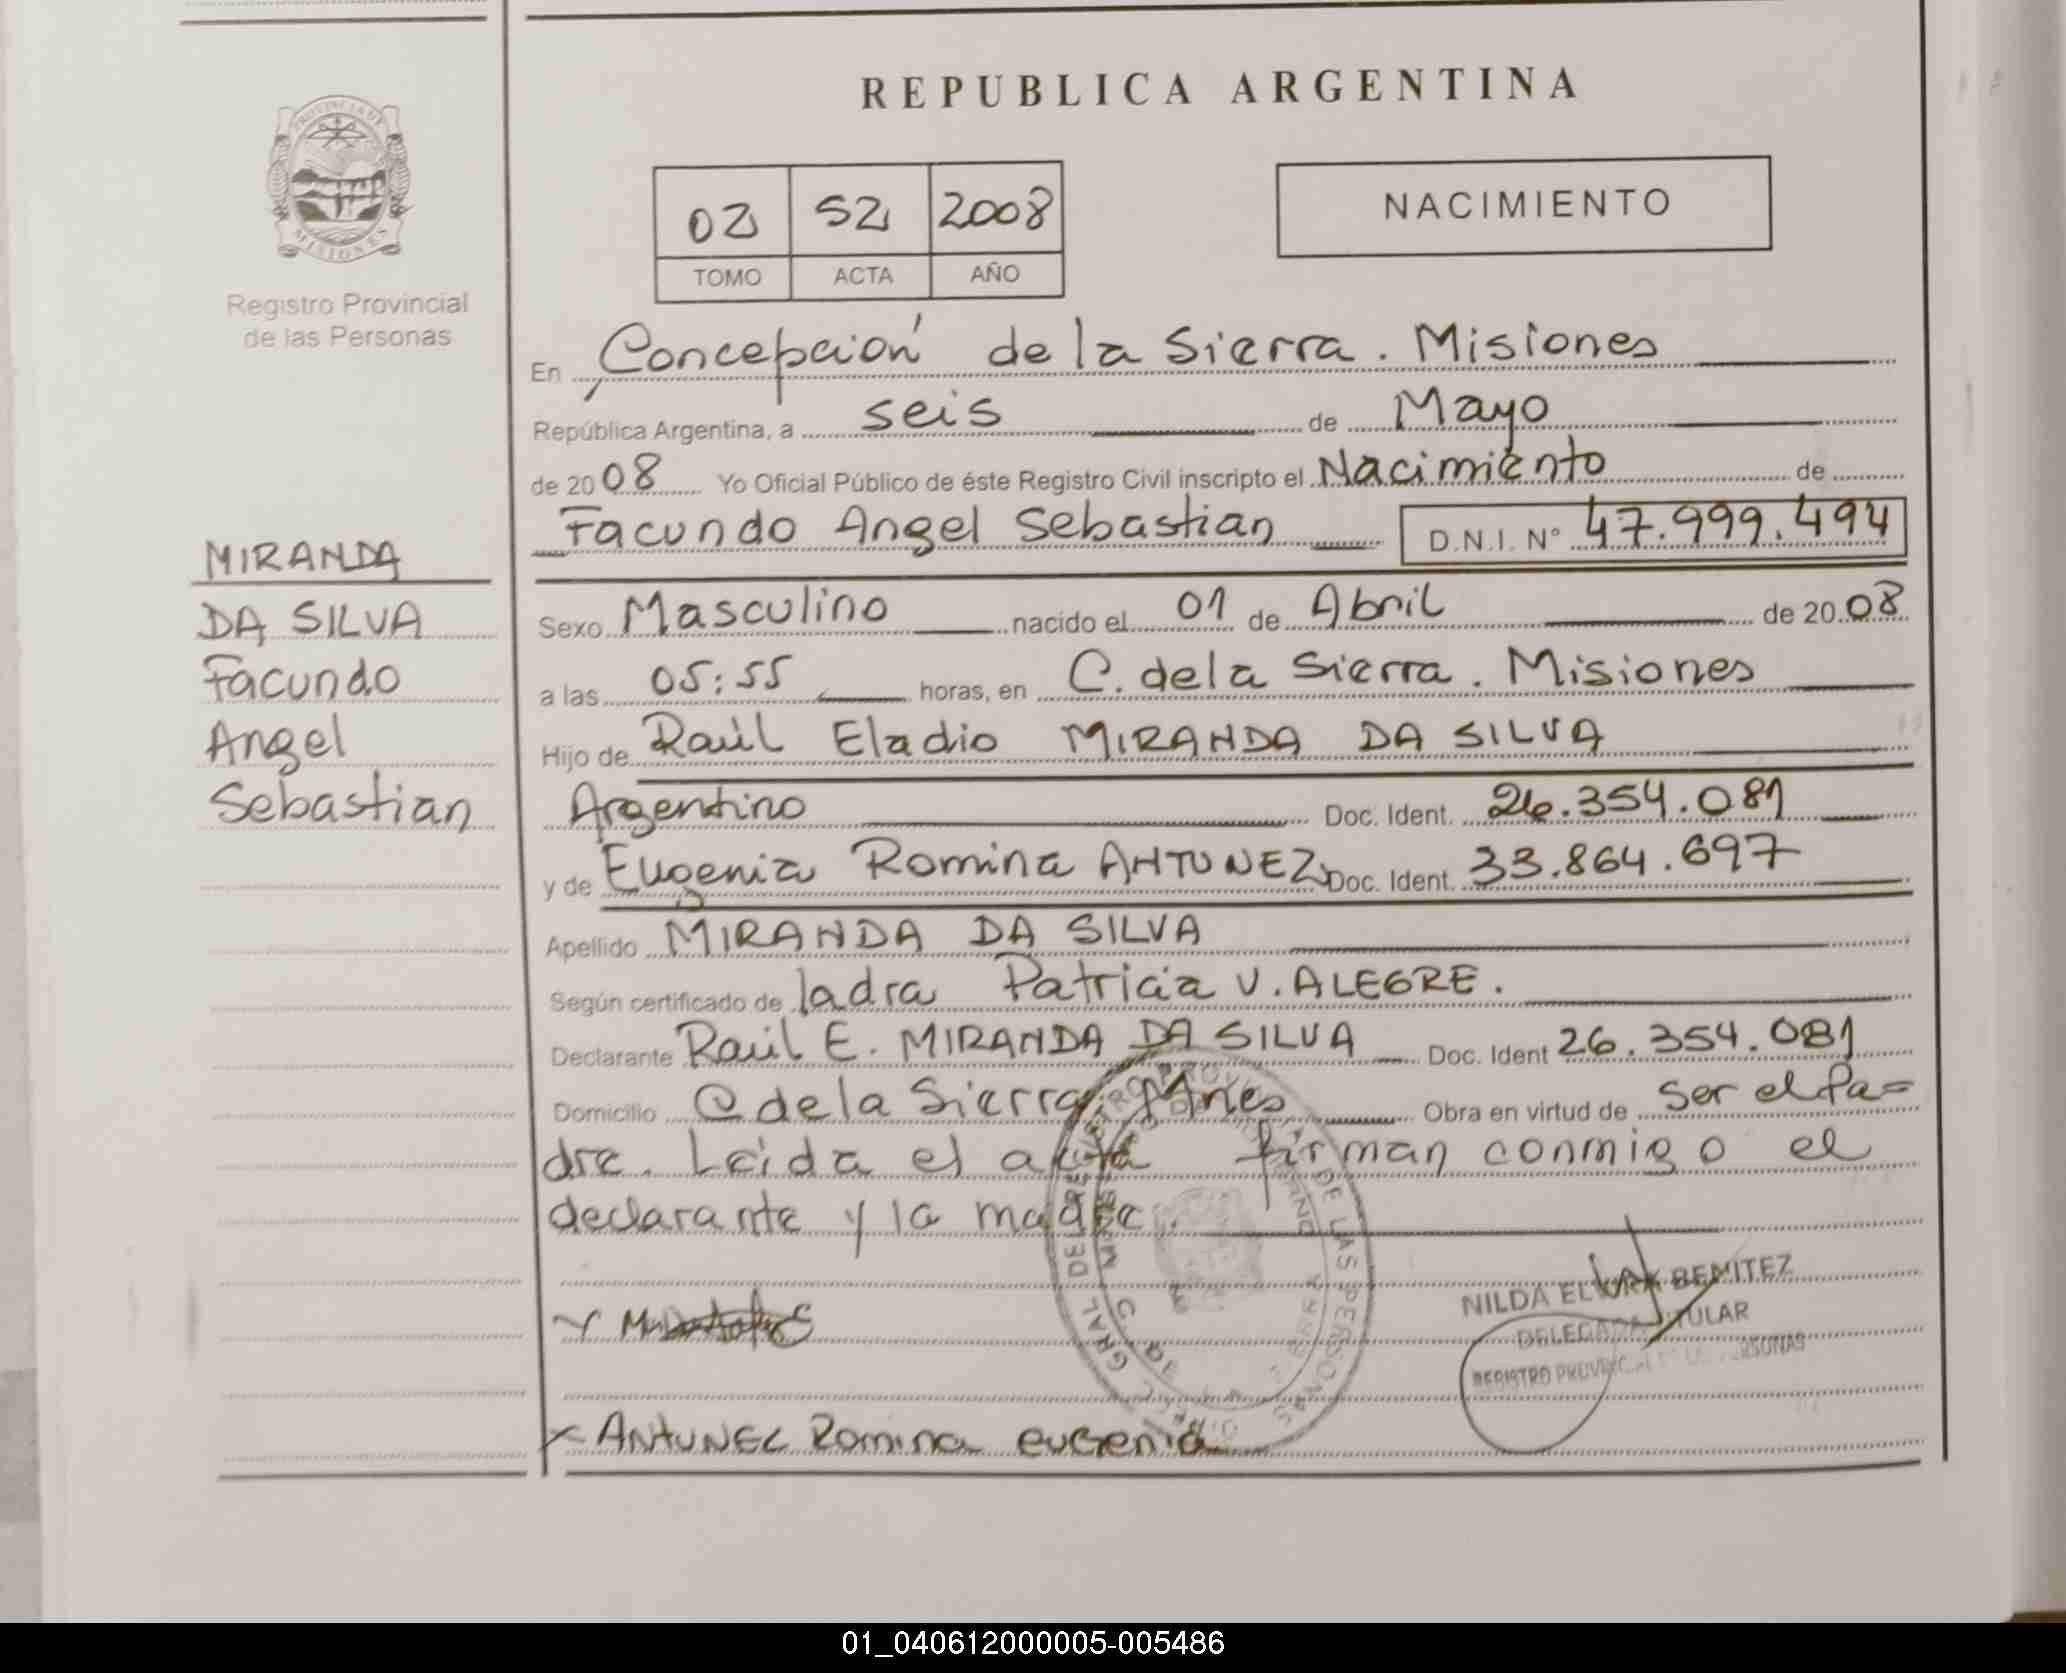 REPUBLICA ARGENTINA
PROVINCIA DE
MISIONES
Registro Provincial
de las Personas
02 52 2008
TOMO ACTA AÑO
NACIMIENTO
En Concepción de la Sierra. Misiones
República Argentina, a seis de Mayo
de 2008 Yo Oficial Público de éste Registro Civil inscripto el Nacimiento de
Facundo Angel Sebastian D.N.I. N° 47.999.494
MIRANDA
DA SILVA
Facundo
Angel
Sebastian
Sexo Masculino nacido el 01 de Abril de 2008
a las 05:55 horas, en C. de la Sierra. Misiones
Hijo de Raúl Eladio MIRANDA DA SILVA
Argentino Doc. Ident. 26.354.081
y de Eugenia Romina ANTUNEZ Doc. Ident. 33.864.697
Apellido MIRANDA DA SILVA
Según certificado de la dra Patricia V. ALEGRE.
Declarante Raúl E. MIRANDA DA SILVA Doc. Ident 26.354.081
Domicilio C de la Sierra Mnes Obra en virtud de ser el Pa=
dre. Leida el acta firman conmigo el
declarante y la madre.
NILDA ELVIRA BENITEZ
DELEGADA TITULAR
REGISTRO PROVINCIAL DE LAS PERSONAS
X ANTUNEZ Romina eugenia
01_040612000005-005486